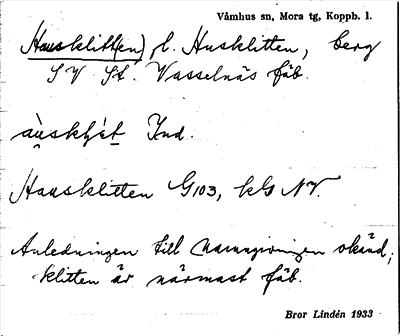 Våmhus sn, Mora tg, Koppb. l.
Hausklitt(en), l. Husklitten, berg
SV St. Vasselnäs fäb.
Ind.
Hausklitten G103, kls NV.
Anledningen till namngivningen okänd;
klitten är närmast fäb.
Bror Lindén 1933